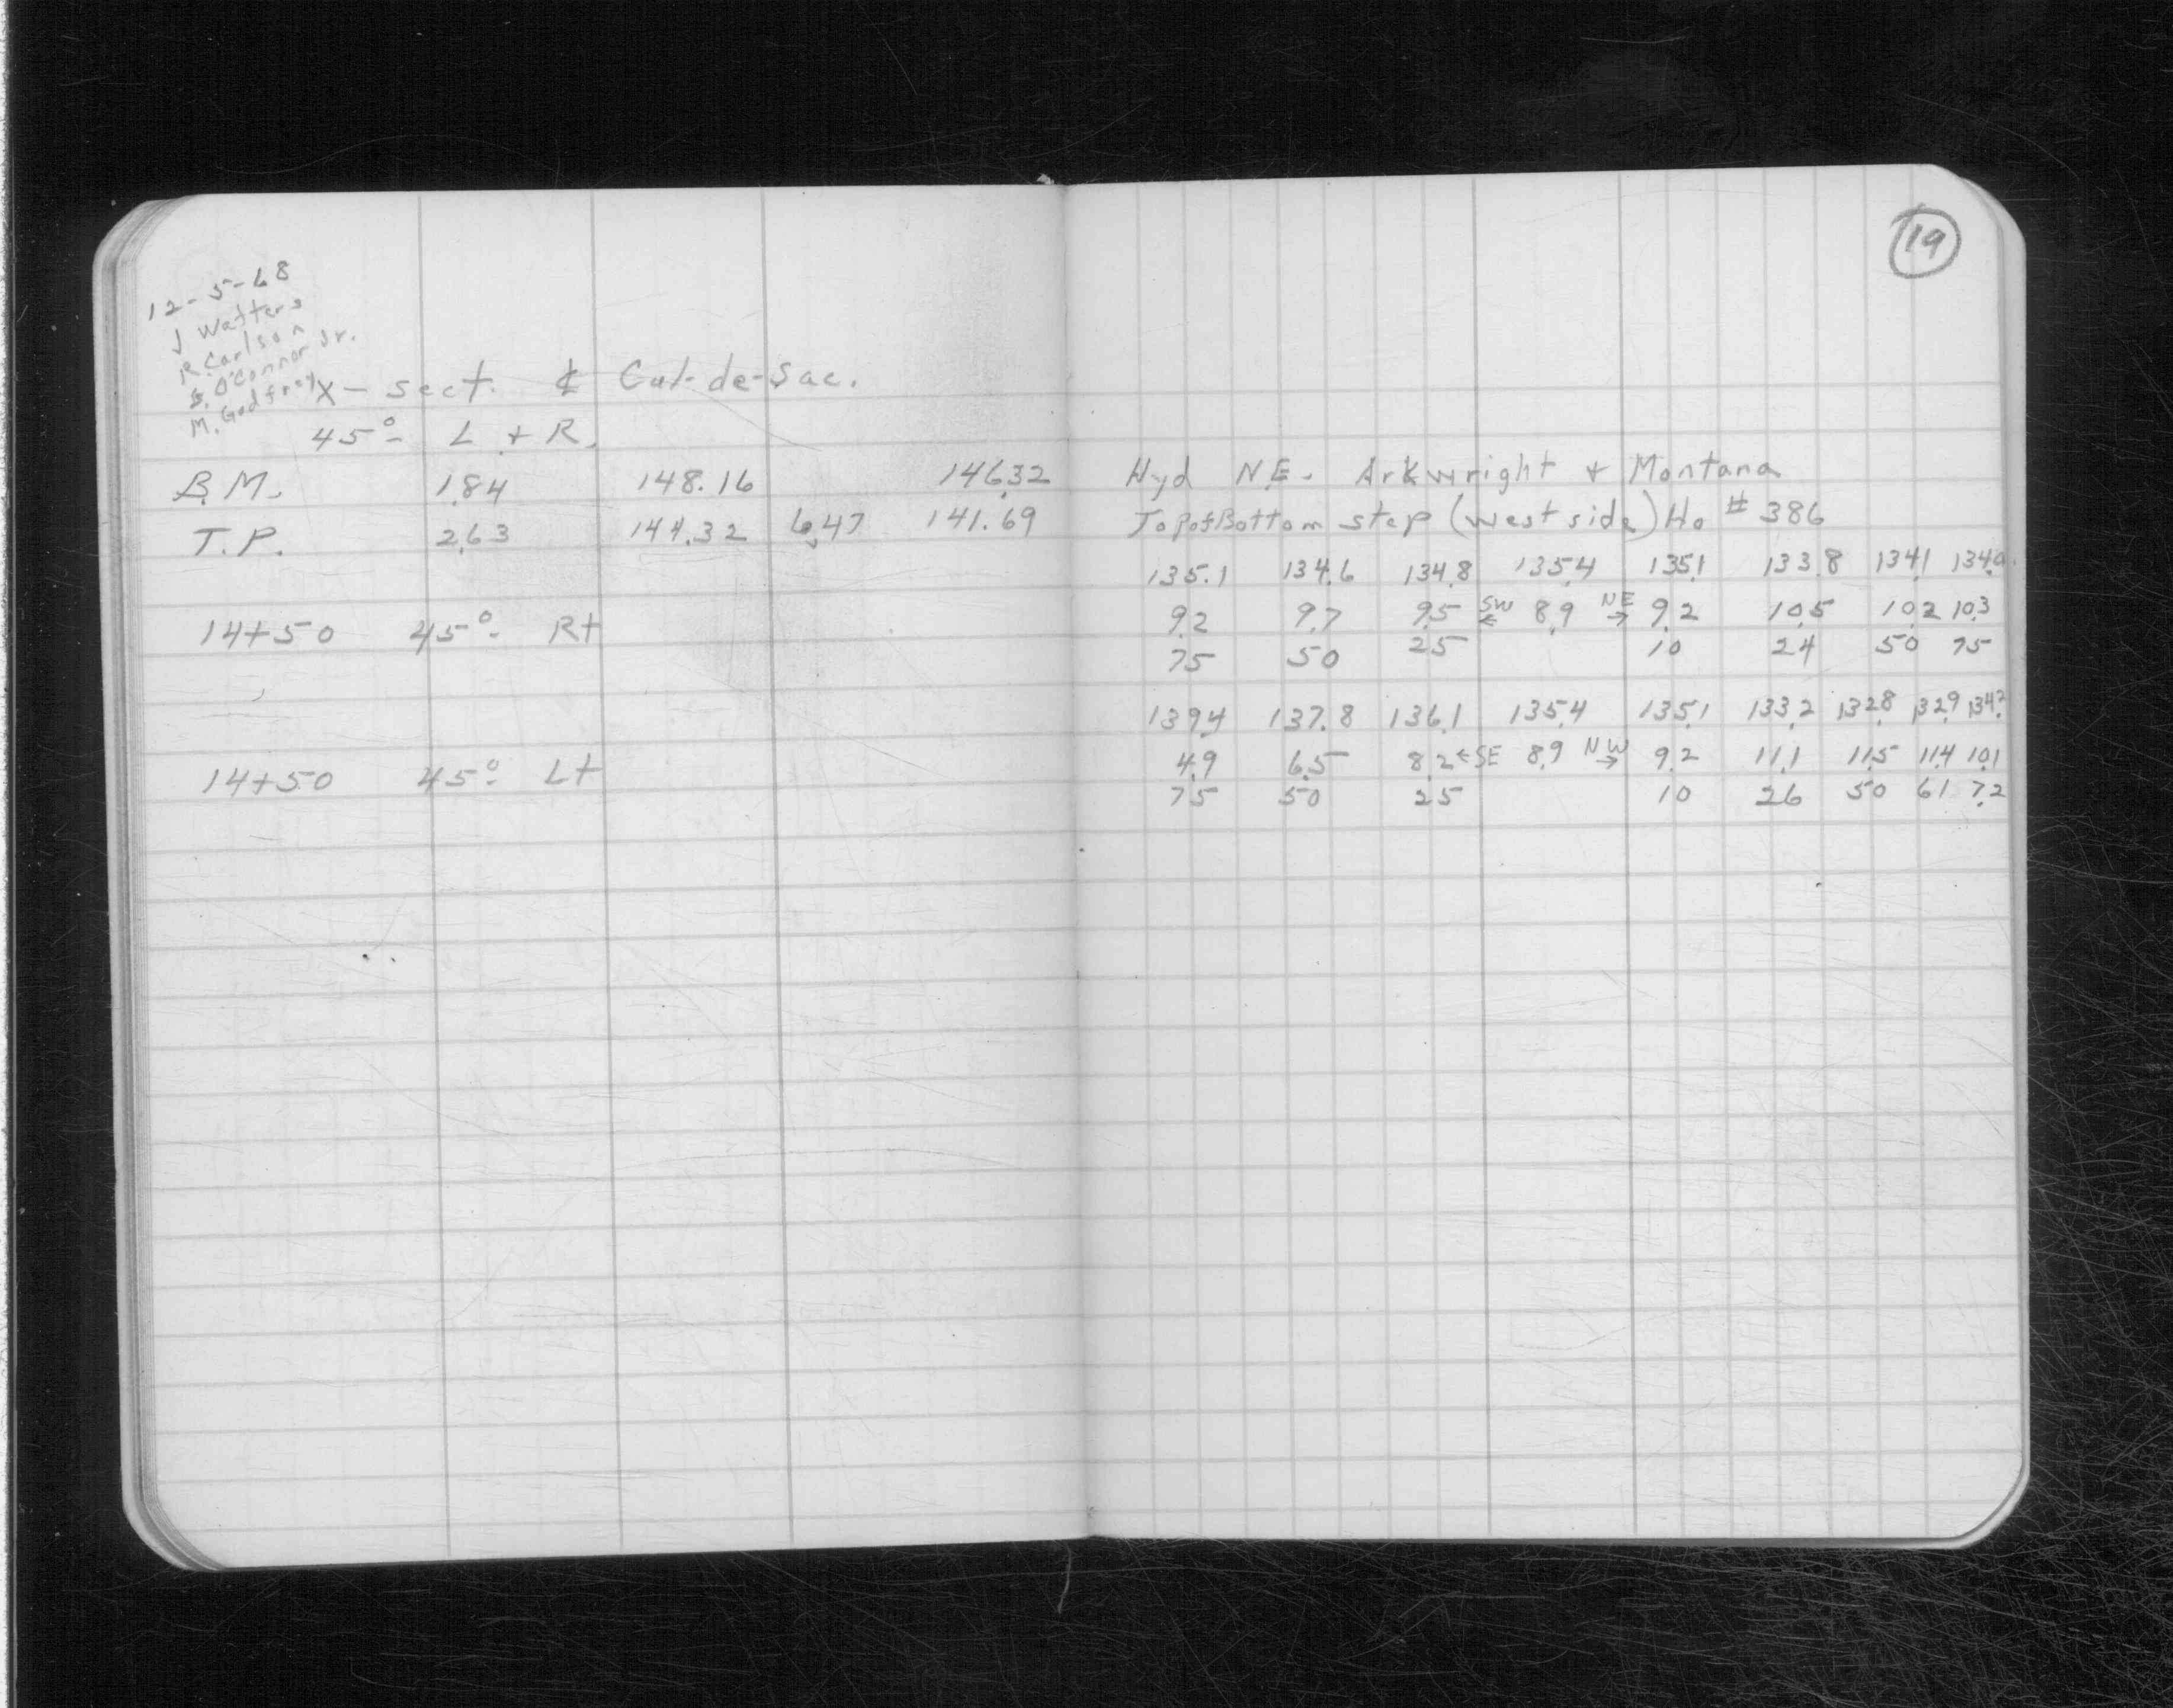 19
12-5-68
J Watters
R Carlson
E. O'Connor Jr.
M. Godfrey
X-sect. ₵ Cul-de-Sac.
45° L + R.
B.M. 1.84 148.16 146.32 Hyd N.E. Arkwright + Montana
T.P. 2.63 144.32 6.47 141.69 Top of Bottom step (west side) Ho # 386
135.1 134.6 134.8 135.4 135.1 133.8 134.1 134.0
14+50 45° Rt 9.2 9.7 9.5 SW ← 8.9 NE → 9.2 10.5 10.2 10.3
75 50 25 10 24 50 75
139.4 137.8 136.1 135.4 135.1 133.2 132.8 132.9 134.2
14+50 45° Lt 4.9 6.5 8.2 ← SE 8.9 NW → 9.2 11.1 11.5 11.4 10.1
75 50 25 10 26 50 61 72